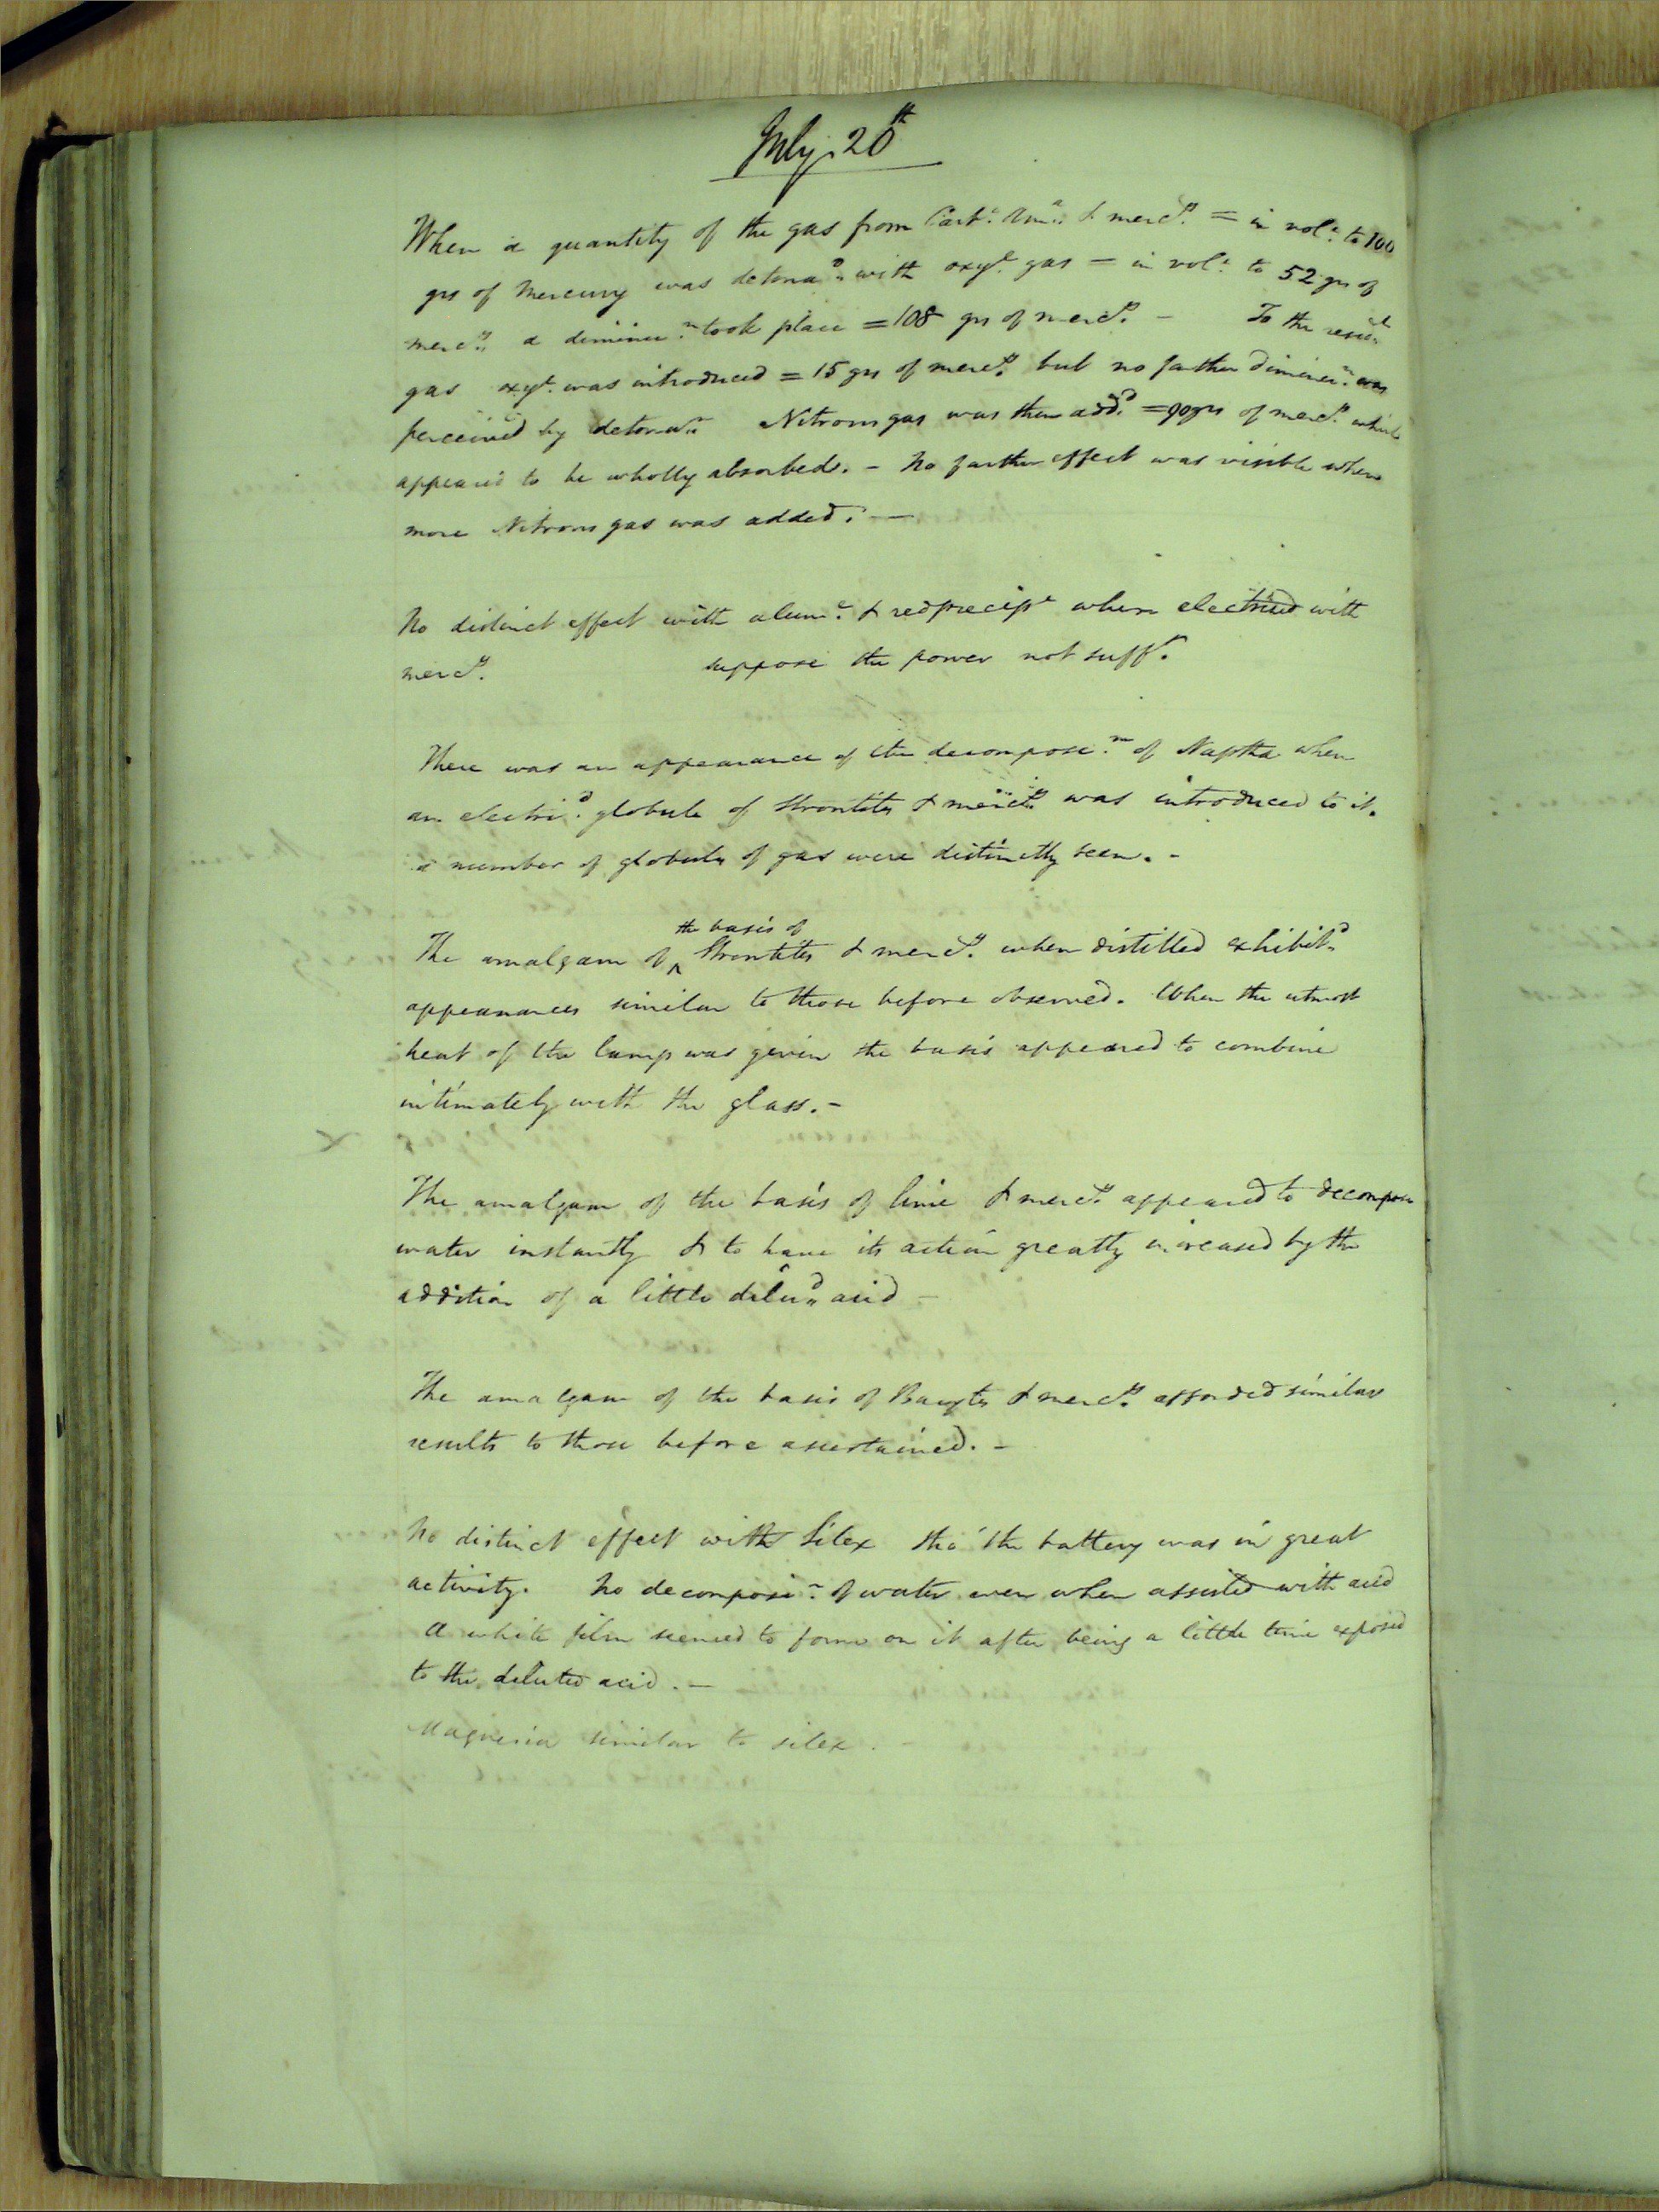 July. 20th
When a quantity of the gas from Carb.e Amm.a & merc.y = in vol.e to 100
grs of Mercury was detona.d with oxy.e gas = in vol.e to 52 grs of
merc.y a diminu.n took place = 108 grs of merc.y - To the resi.al
gas oxy.e was introduced = 15 grs of merc.y but no farther diminu.n was
perceived by detona.n Nitrous gas was then add.d = 90 grs of merc.y which
appeared to be wholly absorbed. - No farther effect was visible when
more Nitrous gas was added. -
No distinct effect with alum.e & red precip.e when electrised with
merc.y suppose the power not suff.t
There was an appearance of the decomposi.n of Naptha when
an electri.d globule of Strontites & merc.y was introduced to it.
a number of globules of gas were distinctly seen. -
the basis of
The amalgam of ^ Strontites & merc.y when distilled exhibit.d
appearances similar to those before observed. When the utmost
heat of the lamp was given the basis appeared to combine
intimately with the glass. -
The amalgam of the basis of lime & merc.y appeared to decompose
water instantly & to have its action greatly increased by the
addition of a little dilu.d acid -
The amalgam of the basis of Barytes & merc.y afforded similar
results to those before ascertained. -
No distinct effect with Silex tho' the battery was in great
activity. No decomposi.n of water even when assisted with acid
a white film seemed to form on it after being a little time exposed
to the diluted acid. -
Magnesia similar to silex. -